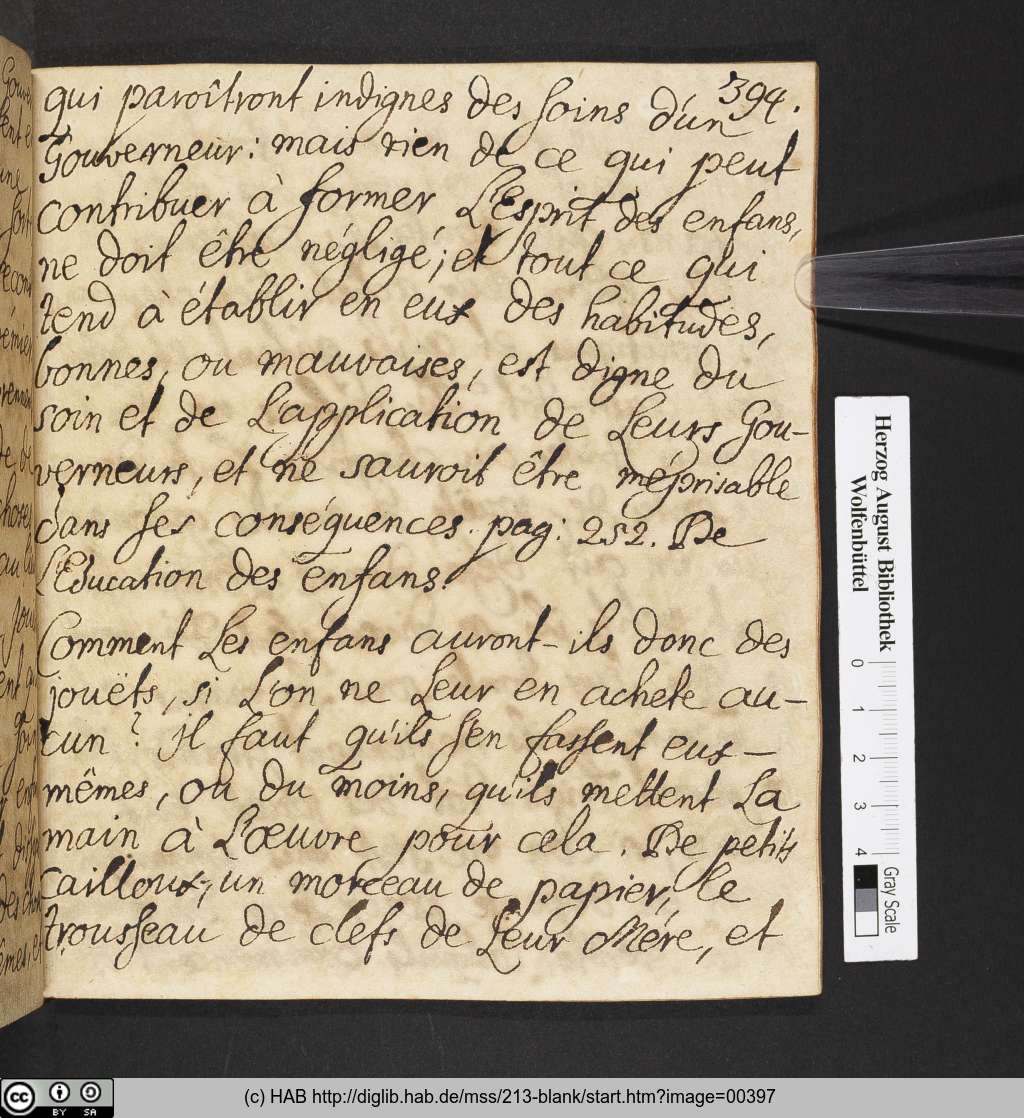 394.
qui paroîtront indignes des soins d'un
Gouverneur: mais rien de ce qui peut
contribuer à former L'Esprit des enfans,
ne doit être négligé; et tout ce qui
tend à établir en eux des habitudes,
bonnes, ou mauvaises, est digne du
soin et de L'application de Leurs Gou-
verneurs, et ne sauroit être méprisable
dans ses conséquences. pag: 252. De
L'Education des enfans.
Comment Les enfans auront-ils donc des
jouëts, si L'on ne Leur en achete au-
cun? jl faut qu'ils s'en fassent eux-
mêmes, ou du moins, qu'ils mettent La
main à L'œuvre pour cela. De petits
Cailloux, un morceau de papier, le
trousseau de clefs de Leur Mére, et
Herzog August Bibliothek
Wolfenbüttel
0 1 2 3 4
Gray Scale
cc BY SA
(c) HAB http://diglib.hab.de/mss/213-blank/start.htm?image=00397